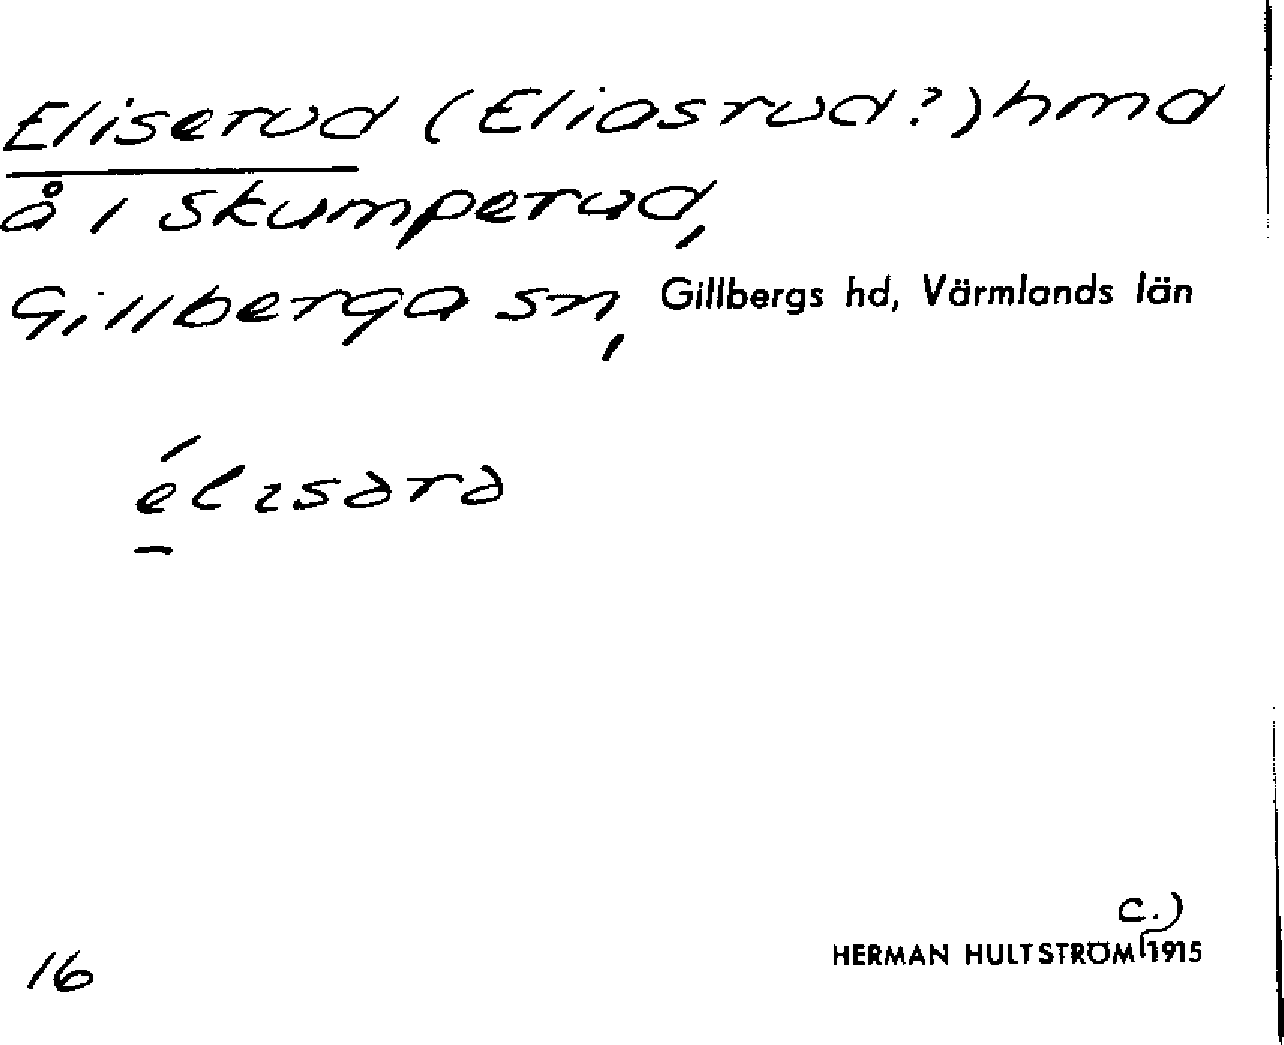 Eliserud (Eliasrud?) hmd
å i Skumperud,
Gillberga sn, Gillbergs hd, Värmlands län
él̶ɪsərə
16
c.)
HERMAN HULTSTRÖM 1915